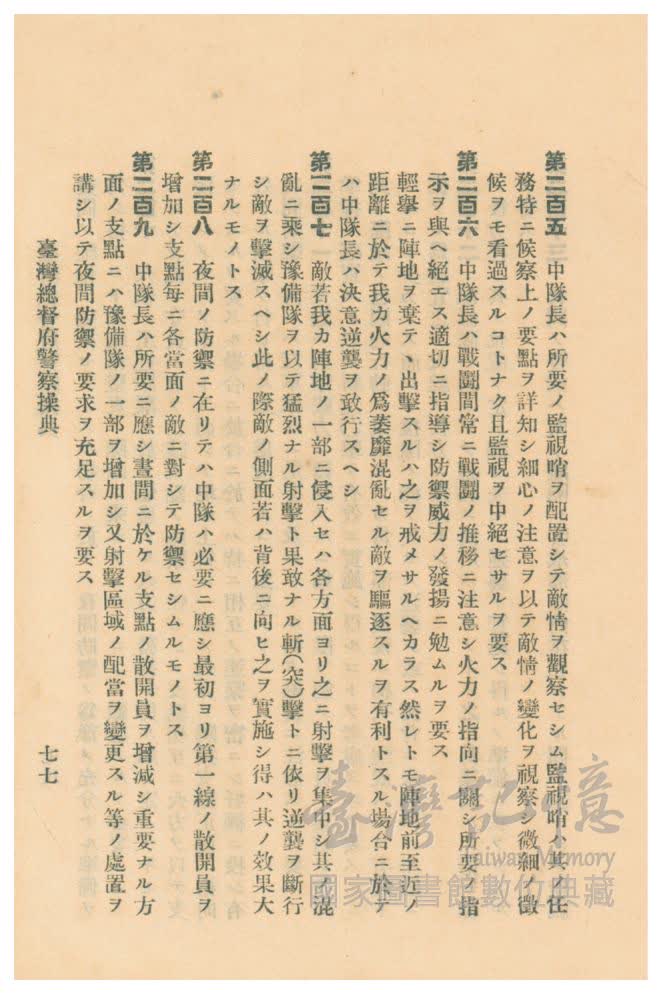 第二百五　中隊長ハ所要ノ監視哨ヲ配置シテ敵情ヲ觀察セシム監視哨ハ其ノ任
務特ニ候察上ノ要點ヲ詳知シ細心ノ注意ヲ以テ敵情ノ變化ヲ視察シ微細ノ徵
候ヲモ看過スルコトナク且監視ヲ中絕セサルヲ要ス
第二百六　中隊長ハ戰鬪間常ニ戰鬪ノ推移ニ注意シ火力ノ指向ニ關シ所要ノ指
示ヲ與ヘ絕エス適切ニ指導シ防禦威力ノ發揚ニ勉ムルヲ要ス
輕擧ニ陣地ヲ棄テヽ出擊スルハ之ヲ戒メサルヘカラス然レトモ陣地前至近ノ
距離ニ於テ我カ火力ノ爲萎靡混亂セル敵ヲ驅逐スルヲ有利トスル場合ニ於テ
ハ中隊長ハ決意逆襲ヲ敢行スヘシ
第二百七　敵若我カ陣地ノ一部ニ侵入セハ各方面ヨリ之ニ射擊ヲ集中シ其ノ混
亂ニ乘シ豫備隊ヲ以テ猛烈ナル射擊ト果敢ナル斬(突)擊トニ依リ逆襲ヲ斷行
シ敵ヲ擊滅スヘシ此ノ際敵ノ側面若ハ背後ニ向ヒ之ヲ實施シ得ハ其ノ效果大
ナルモノトス
第二百八　夜間ノ防禦ニ在リテハ中隊ハ必要ニ應シ最初ヨリ第一線ノ散開員ヲ
增加シ支點每ニ各當面ノ敵ニ對シテ防禦セシムルモノトス
第二百九　中隊長ハ所要ニ應シ晝間ニ於ケル支點ノ散開員ヲ增減シ重要ナル方
面ノ支點ニハ豫備隊ノ一部ヲ增加シ又射擊區域ノ配當ヲ變更スル等ノ處置ヲ
講シ以テ夜間防禦ノ要求ヲ充足スルヲ要ス
臺灣總督府警察操典
七七
臺灣記憶
Taiwan Memory
國家圖書館數位典藏